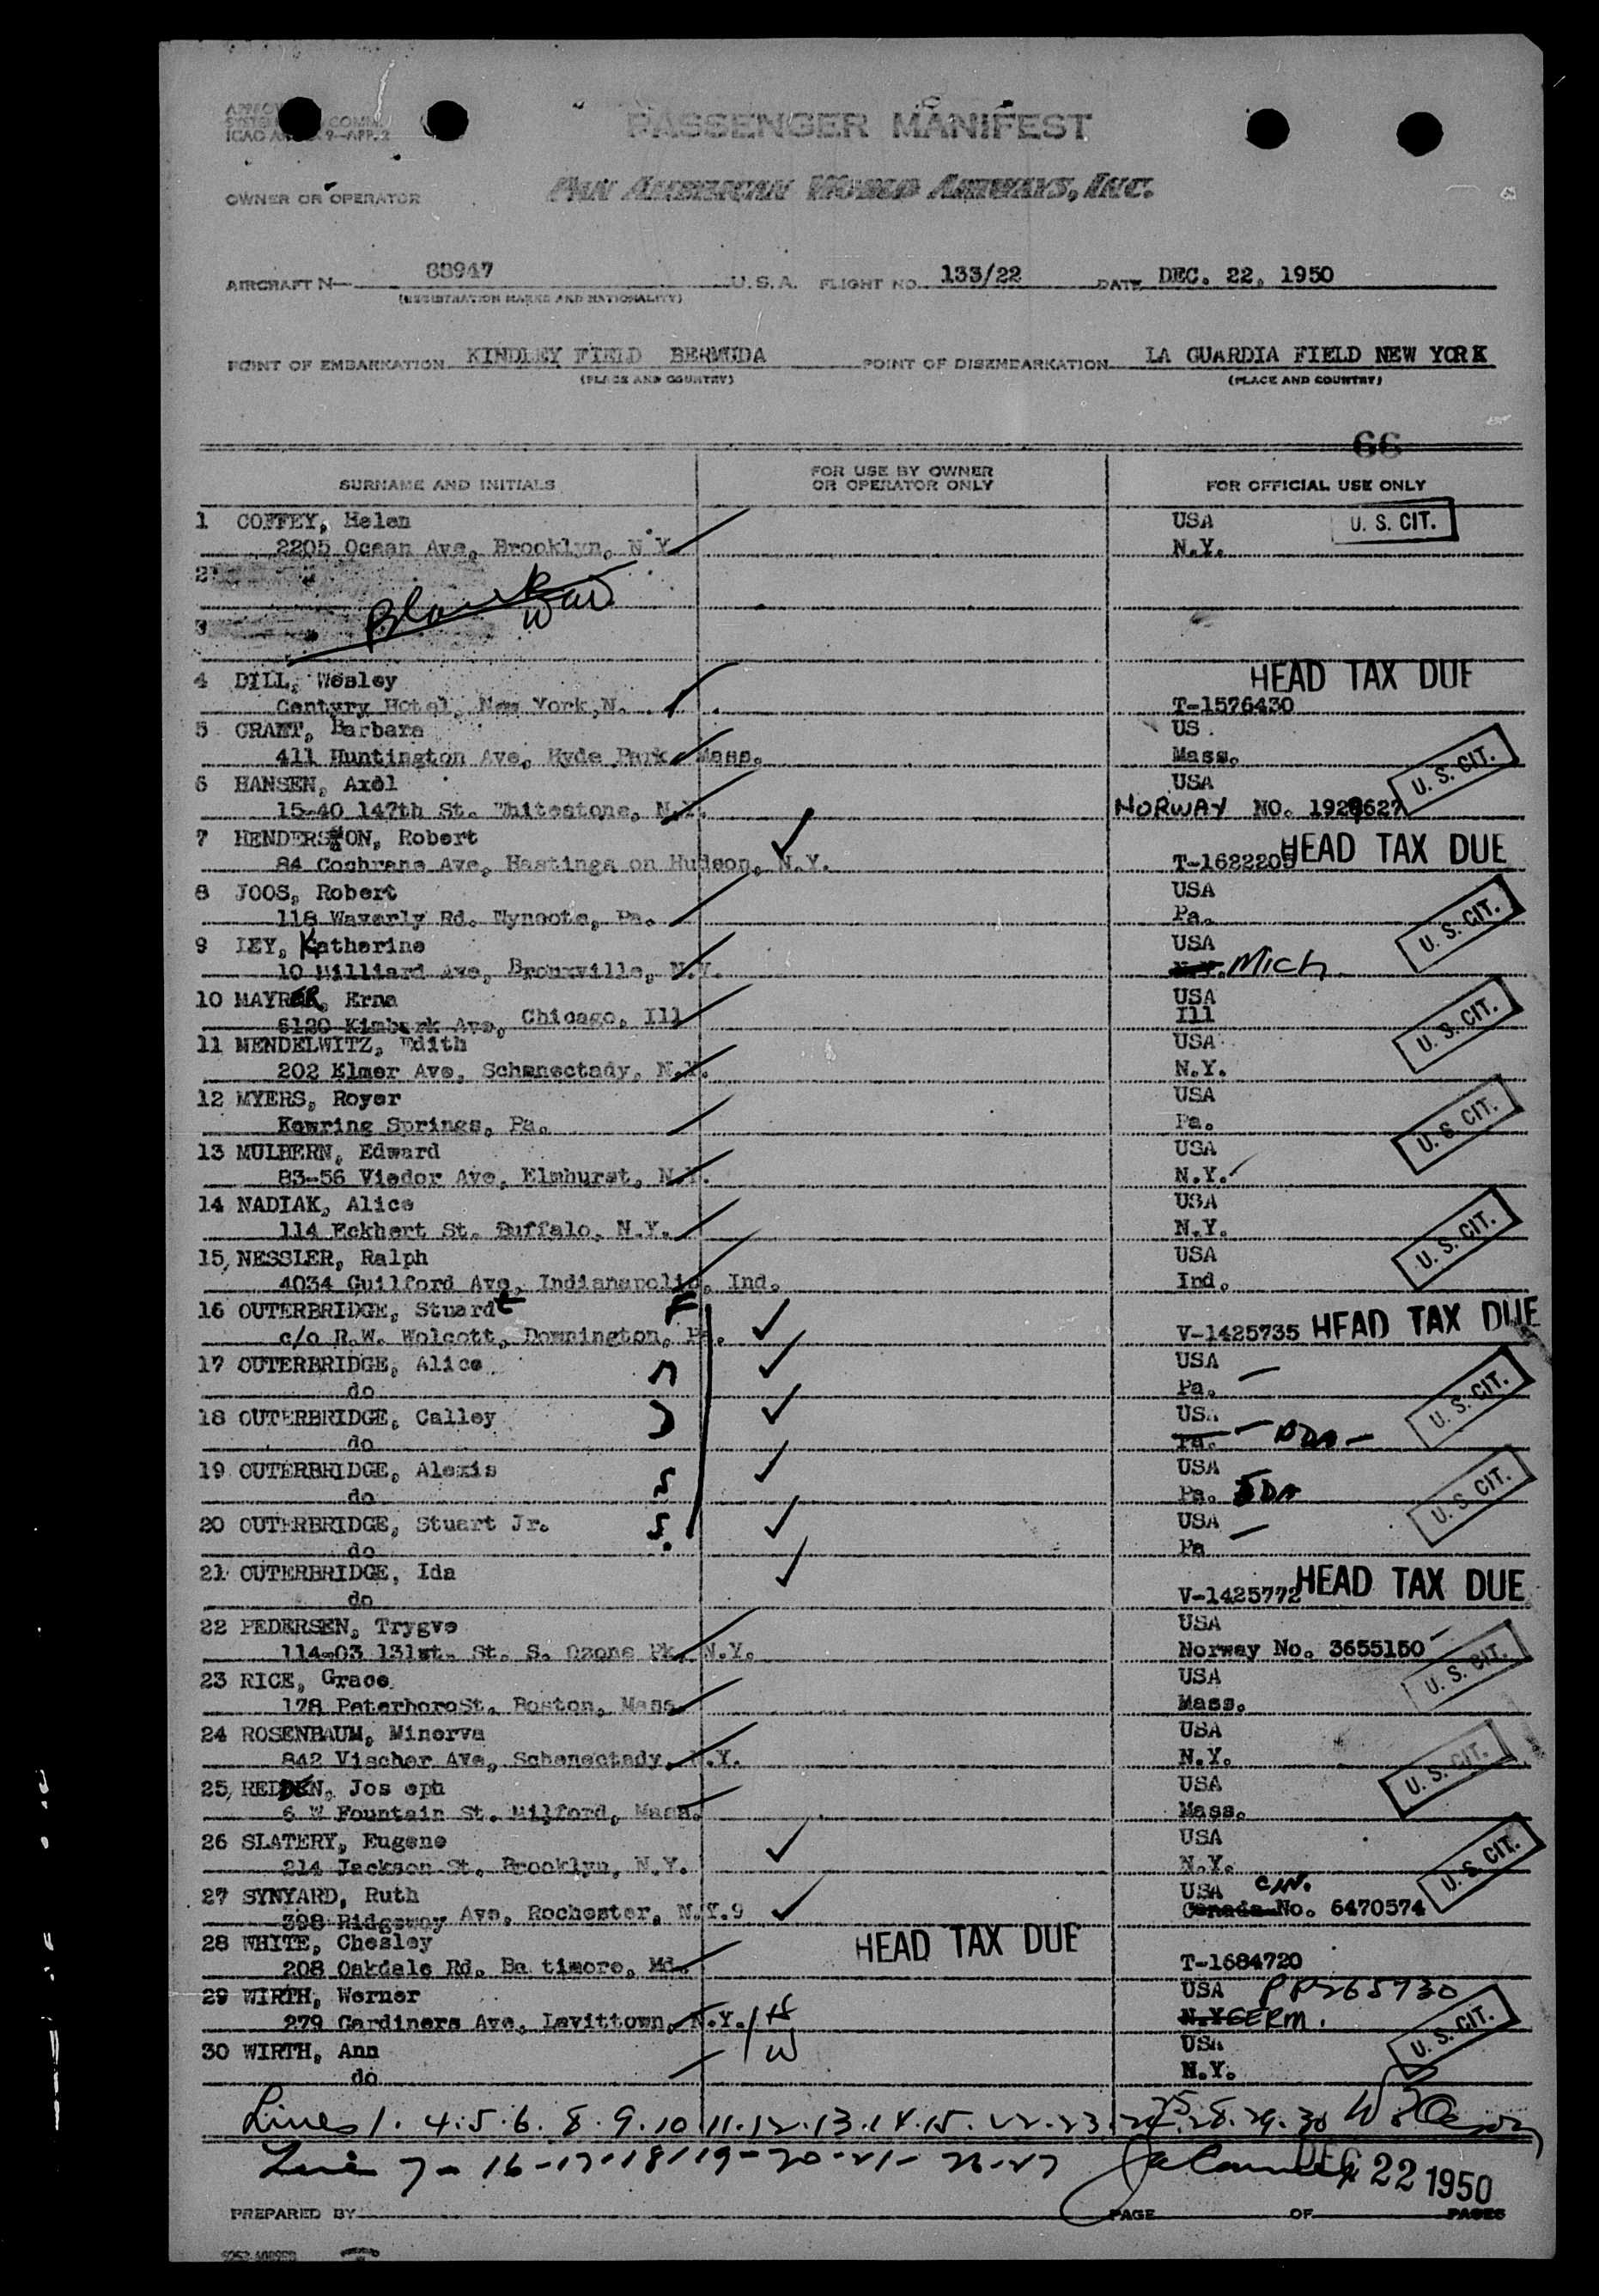 PASSENGER MANIFEST
PAN AMERICAN WORLD AIRWAYS, INC.
OWNER OR OPERATOR
AIRCRAFT N— 88947 U.S.A. FLIGHT NO. 133/22 DATE DEC. 22, 1950
(REGISTRATION MARKS AND NATIONALITY)
POINT OF EMBARKATION KINDLEY FIELD BERMUDA POINT OF DISEMBARKATION LA GUARDIA FIELD NEW YORK
(PLACE AND COUNTRY) (PLACE AND COUNTRY)
66
SURNAME AND INITIALS FOR USE BY OWNER OR OPERATOR ONLY FOR OFFICIAL USE ONLY
1 COFFEY, Helen USA U. S. CIT.
2205 Ocean Ave, Brooklyn, N.Y. N.Y.
2
Blank
3
4 DILL, Wesley HEAD TAX DUE
Century Hotel, New York, N. T-1576430
5 GRANT, Barbara US
411 Huntington Ave, Hyde Park, Mass. Mass. U. S. CIT.
6 HANSEN, Axel USA
15-40 147th St. Whitestone, N.Y. NORWAY NO. 1929627
7 HENDERSON, Robert HEAD TAX DUE
84 Cochrane Ave, Hastings on Hudson, N.Y. T-1622205
8 JOOS, Robert USA
118 Waverly Rd. Wyncote, Pa. Pa. U. S. CIT.
9 LEY, Katherine USA
10 Milliard Ave, Bronxville, N.Y. N.Y. Mich
10 MAYRER, Erna USA
6120 Kimbark Ave, Chicago, Ill Ill U. S. CIT.
11 MENDELWITZ, Edith USA
202 Elmer Ave, Schenectady, N.Y. N.Y.
12 MYERS, Royer USA
Kowring Springs, Pa. Pa. U. S. CIT.
13 MULHERN, Edward USA
83-56 Viedor Ave, Elmhurst, N.Y. N.Y.
14 NADIAK, Alice USA
114 Eckhert St. Buffalo, N.Y. N.Y. U. S. CIT.
15 NESSLER, Ralph USA
4034 Guilford Ave, Indianapolis, Ind. Ind.
16 OUTERBRIDGE, Stuardt F
c/o R.W. Wolcott, Downington, Pa. V-1425735 HEAD TAX DUE
17 OUTERBRIDGE, Alice USA
do Pa. U. S. CIT.
18 OUTERBRIDGE, Calley USA
do Pa. BDA
19 OUTERBRIDGE, Alexis USA
do Pa. BDA U. S. CIT.
20 OUTERBRIDGE, Stuart Jr. USA
do Pa
21 OUTERBRIDGE, Ida HEAD TAX DUE
do V-1425772
22 PEDERSEN, Trygve USA
114-03 131st. St. S. Ozone Pk, N.Y. Norway No. 3655150 U. S. CIT.
23 RICE, Grace USA
178 PeterboroSt. Boston, Mass. Mass.
24 ROSENBAUM, Minerva USA
842 Vischer Ave, Schenectady, N.Y. N.Y. U. S. CIT.
25 REDDEN, Jos eph USA
6 W Fountain St. Milford, Mass. Mass.
26 SLATERY, Eugene USA
214 Jackson St. Brooklyn, N.Y. N.Y. U. S. CIT.
27 SYNYARD, Ruth USA C/N.
398 Ridgeway Ave, Rochester, N.Y.9 Canada No. 6470574
28 WHITE, Chesley HEAD TAX DUE
208 Oakdale Rd. Ba timore, Md. T-1684720
29 WIRTH, Werner USA PP265730
279 Gardiners Ave, Levittown, N.Y. H N.Y. GERM.
30 WIRTH, Ann W USA U. S. CIT.
do N.Y.
Lines 1. 4. 5. 6. 8. 9. 10 11. 12. 13. 14. 15. 22. 23. 24. 25. 28. 29. 30
Line 7 - 16-17-18-19-20-21-26-27 DEC 22 1950
PREPARED BY PAGE OF PAGES